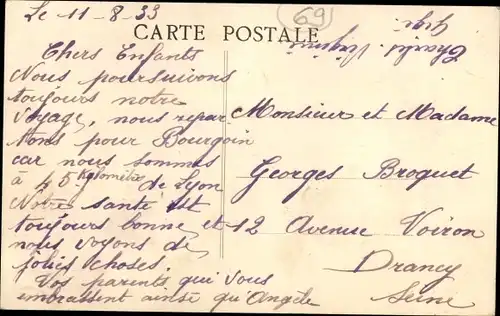 Le 11-8-33
CARTE POSTALE
69
Chers Enfants
Nous poursuivons
toujours notre
voyage, nous repar
tons pour Bourgoin
car nous sommes
à 45 Kilomètres de Lyon
Notre santé est
toujours bonne et
nous voyons de
jolies choses.
Vos parents qui vous
embrassent ainsi qu'Angèle
Monsieur et Madame
Georges Broquet
12 Avenue Voiron
Drancy
Seine